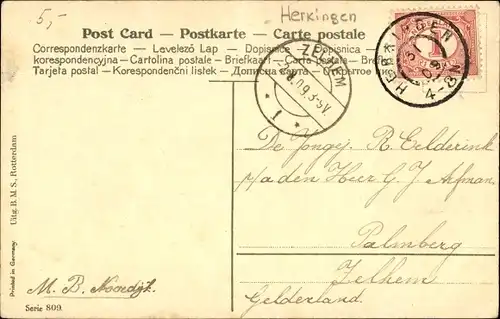 5,-
Herkingen
Post Card — Postkarte — Carte postale
Correspondenzkarte — Levelező Lap — Dopisnice — Dopisnica
korespondencyjna — Cartolina postale — Briefkaart — Carta postala — Brefkort
Tarjeta postal — Korespondenční listek — Дописна карта — Открытое
HERKINGEN
4-8N
ZELHEM
1
De Jongej. R. Eelderink
p/a den Heer G. J.
Palmberg
Zelhem
Gelderland.
M. B. Noordijk.
Serie 809.
Uitg. B. M. S., Rotterdam
Printed in Germany